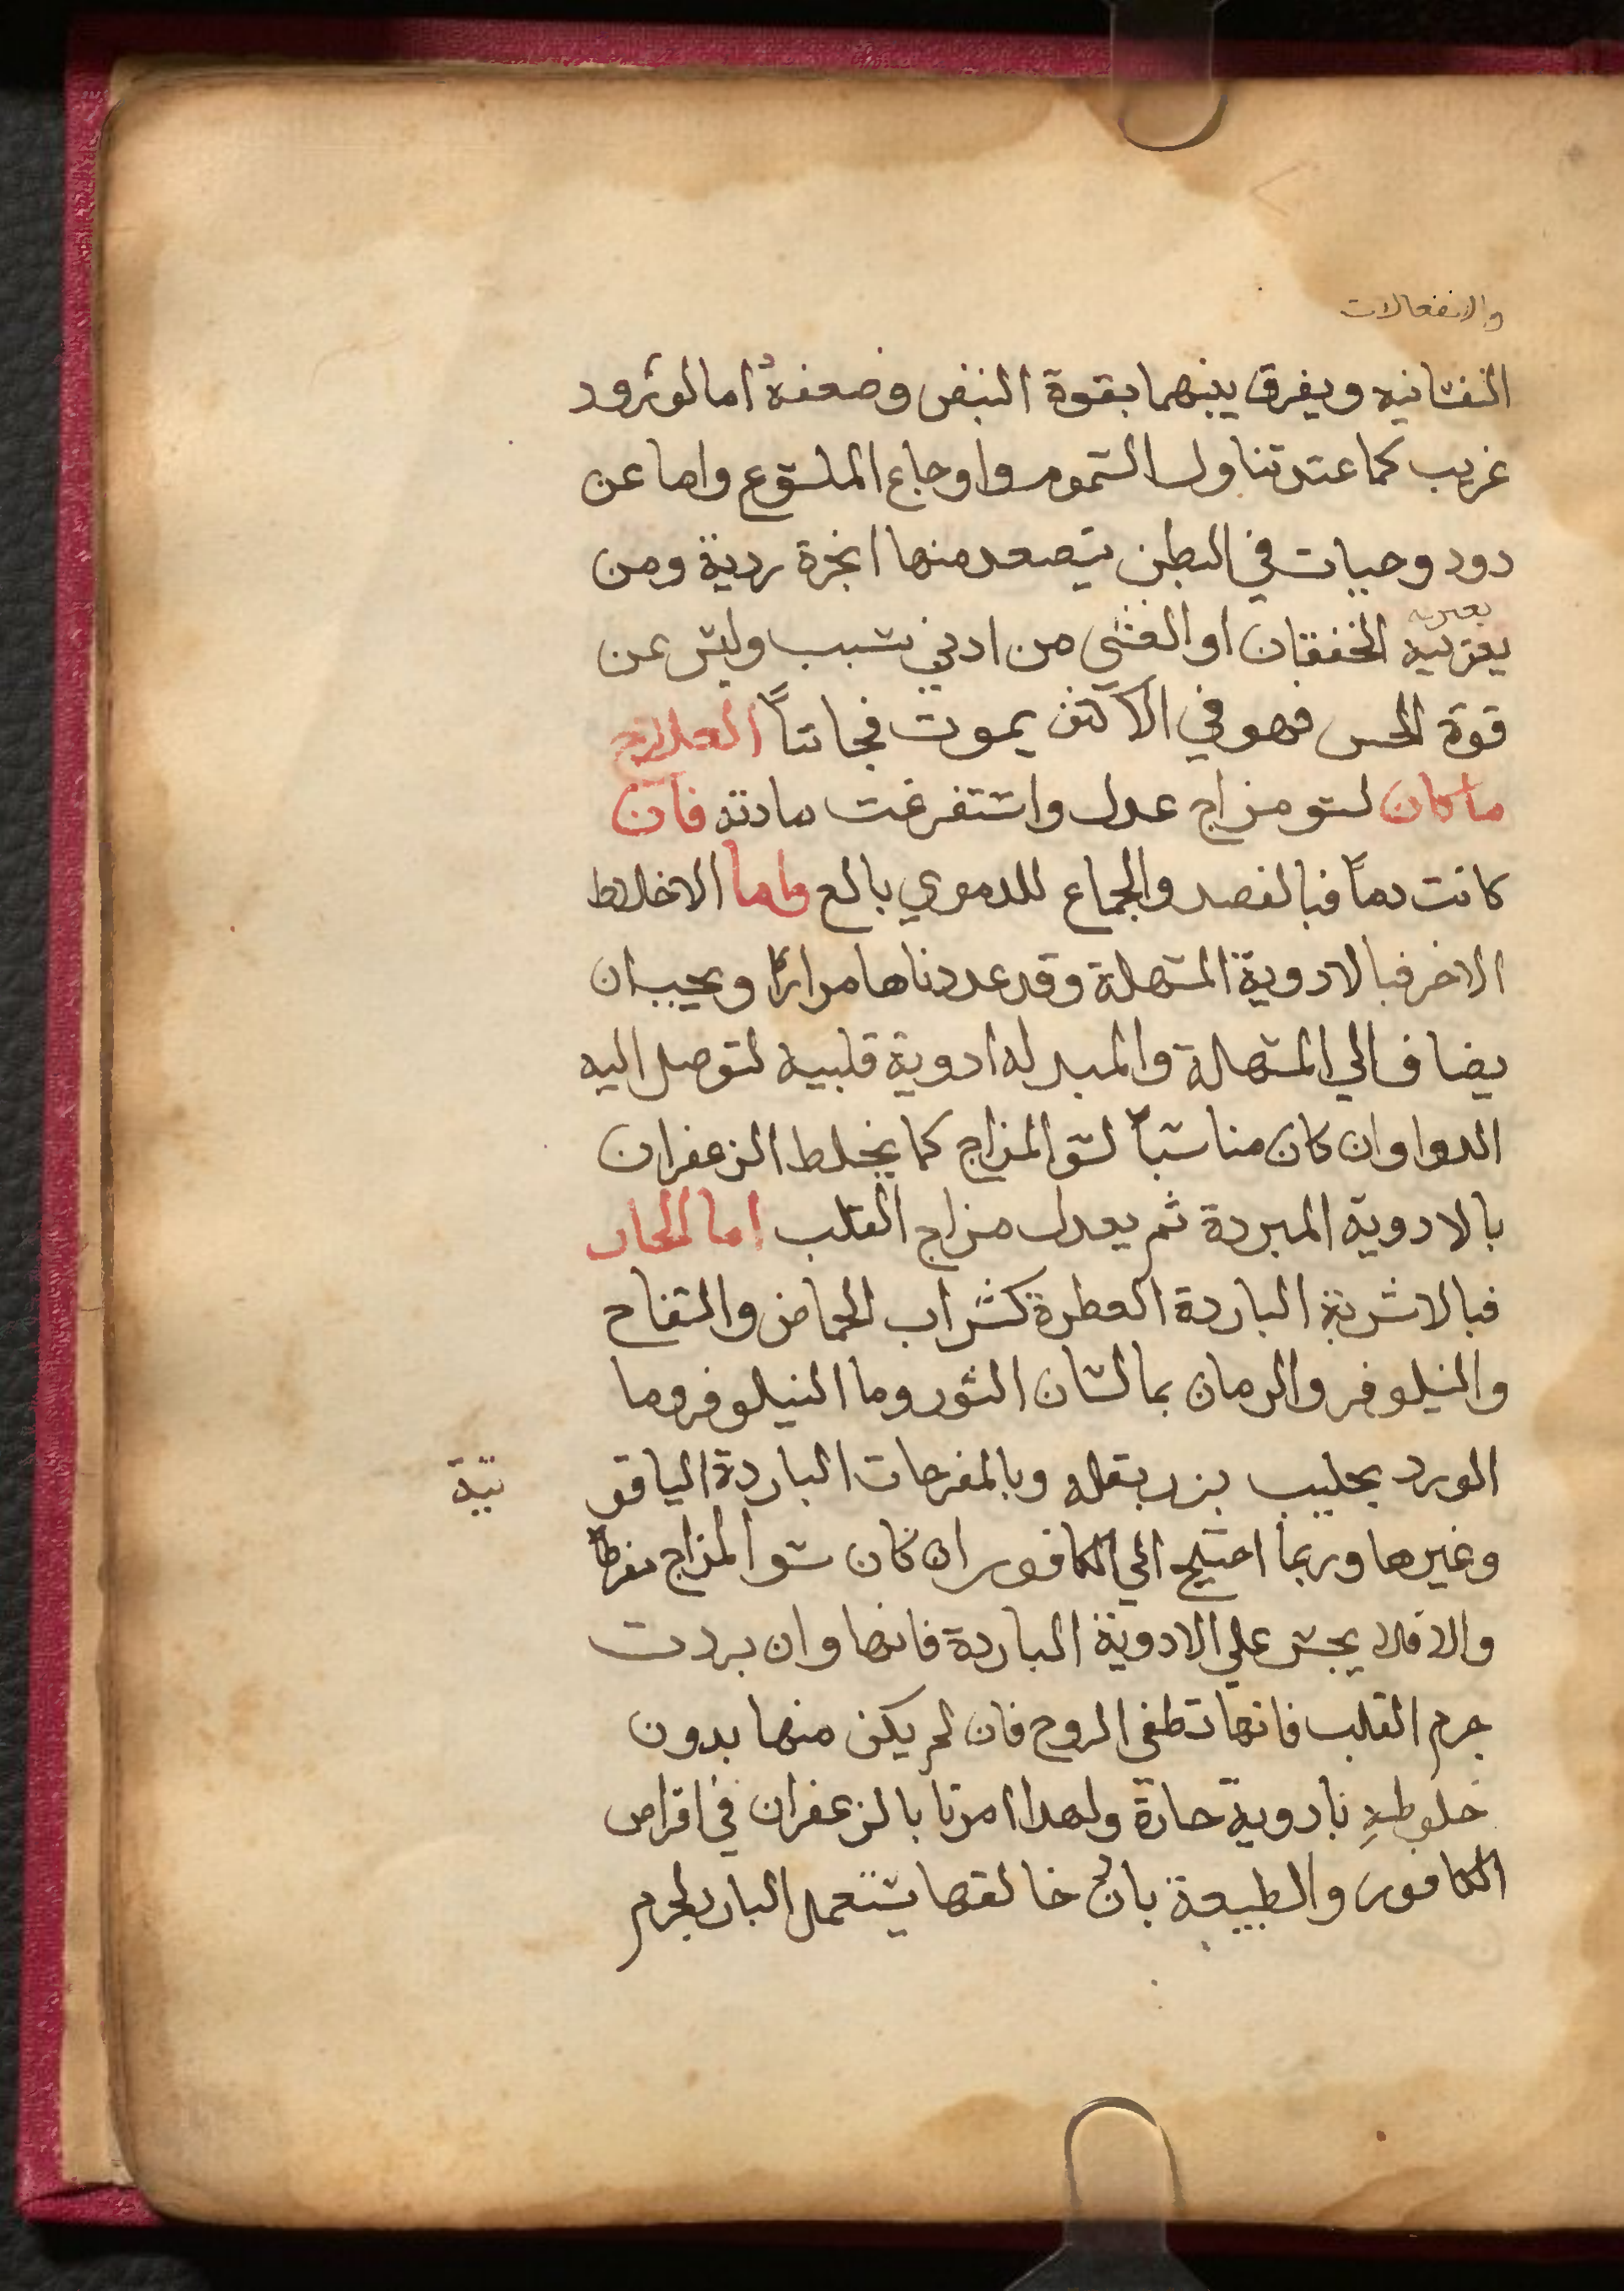 والانفعالات
النفسانيه ويفرق بينهما بقوة النبض وضعفه اما لورود
غريب كما عند تناول السموم واوجاع الملسوع واما عن
دود وحيات في البطن يتصعد منها ابخرة ردية ومن
يعتريه
يعتريه الخفقان او الغشي من ادني سبب وليس عن
قوة الحس فهو في الاكثر يموت فجاتاً العلاج
ما كان لسو مزاج عدل واستفرغت مادته فان
كانت دماً فبالفصد والجماع للدموي بالع واما الاخلاط
الاخر فبالادوية المسهلة وقد عددناها مراراً ويجب ان
يضاف الي المسهلة والمبدله ادوية قلبيه لتوصل اليه
الدوا وان كان مناسباً لسو المزاج كما يخلط الزعفران
بالادوية المبردة ثم يعدل مزاج القلب اما الحار
فبالاشربة الباردة العطرة كشراب الحماض والتفاح
والنيلوفر والرمان بما لسان الثور وما النيلوفر وما
الورد بحليب بزر بقله وبالمفرحات الباردة الياقو
تية
وغيرها وربما احتيج الي الكافور ان كان سو المزاج مفرطاً
والا فلا يجسر علي الادوية الباردة فانها وان بردت
جرم القلب فانها تطفي الروح فان لم يكن منها بدون
خلوطهِ بادوية حارة ولهدا امرنا بالزعفران في اقراص
الكافور والطبيعة بادن خالقها يستعمل البارد لجرم